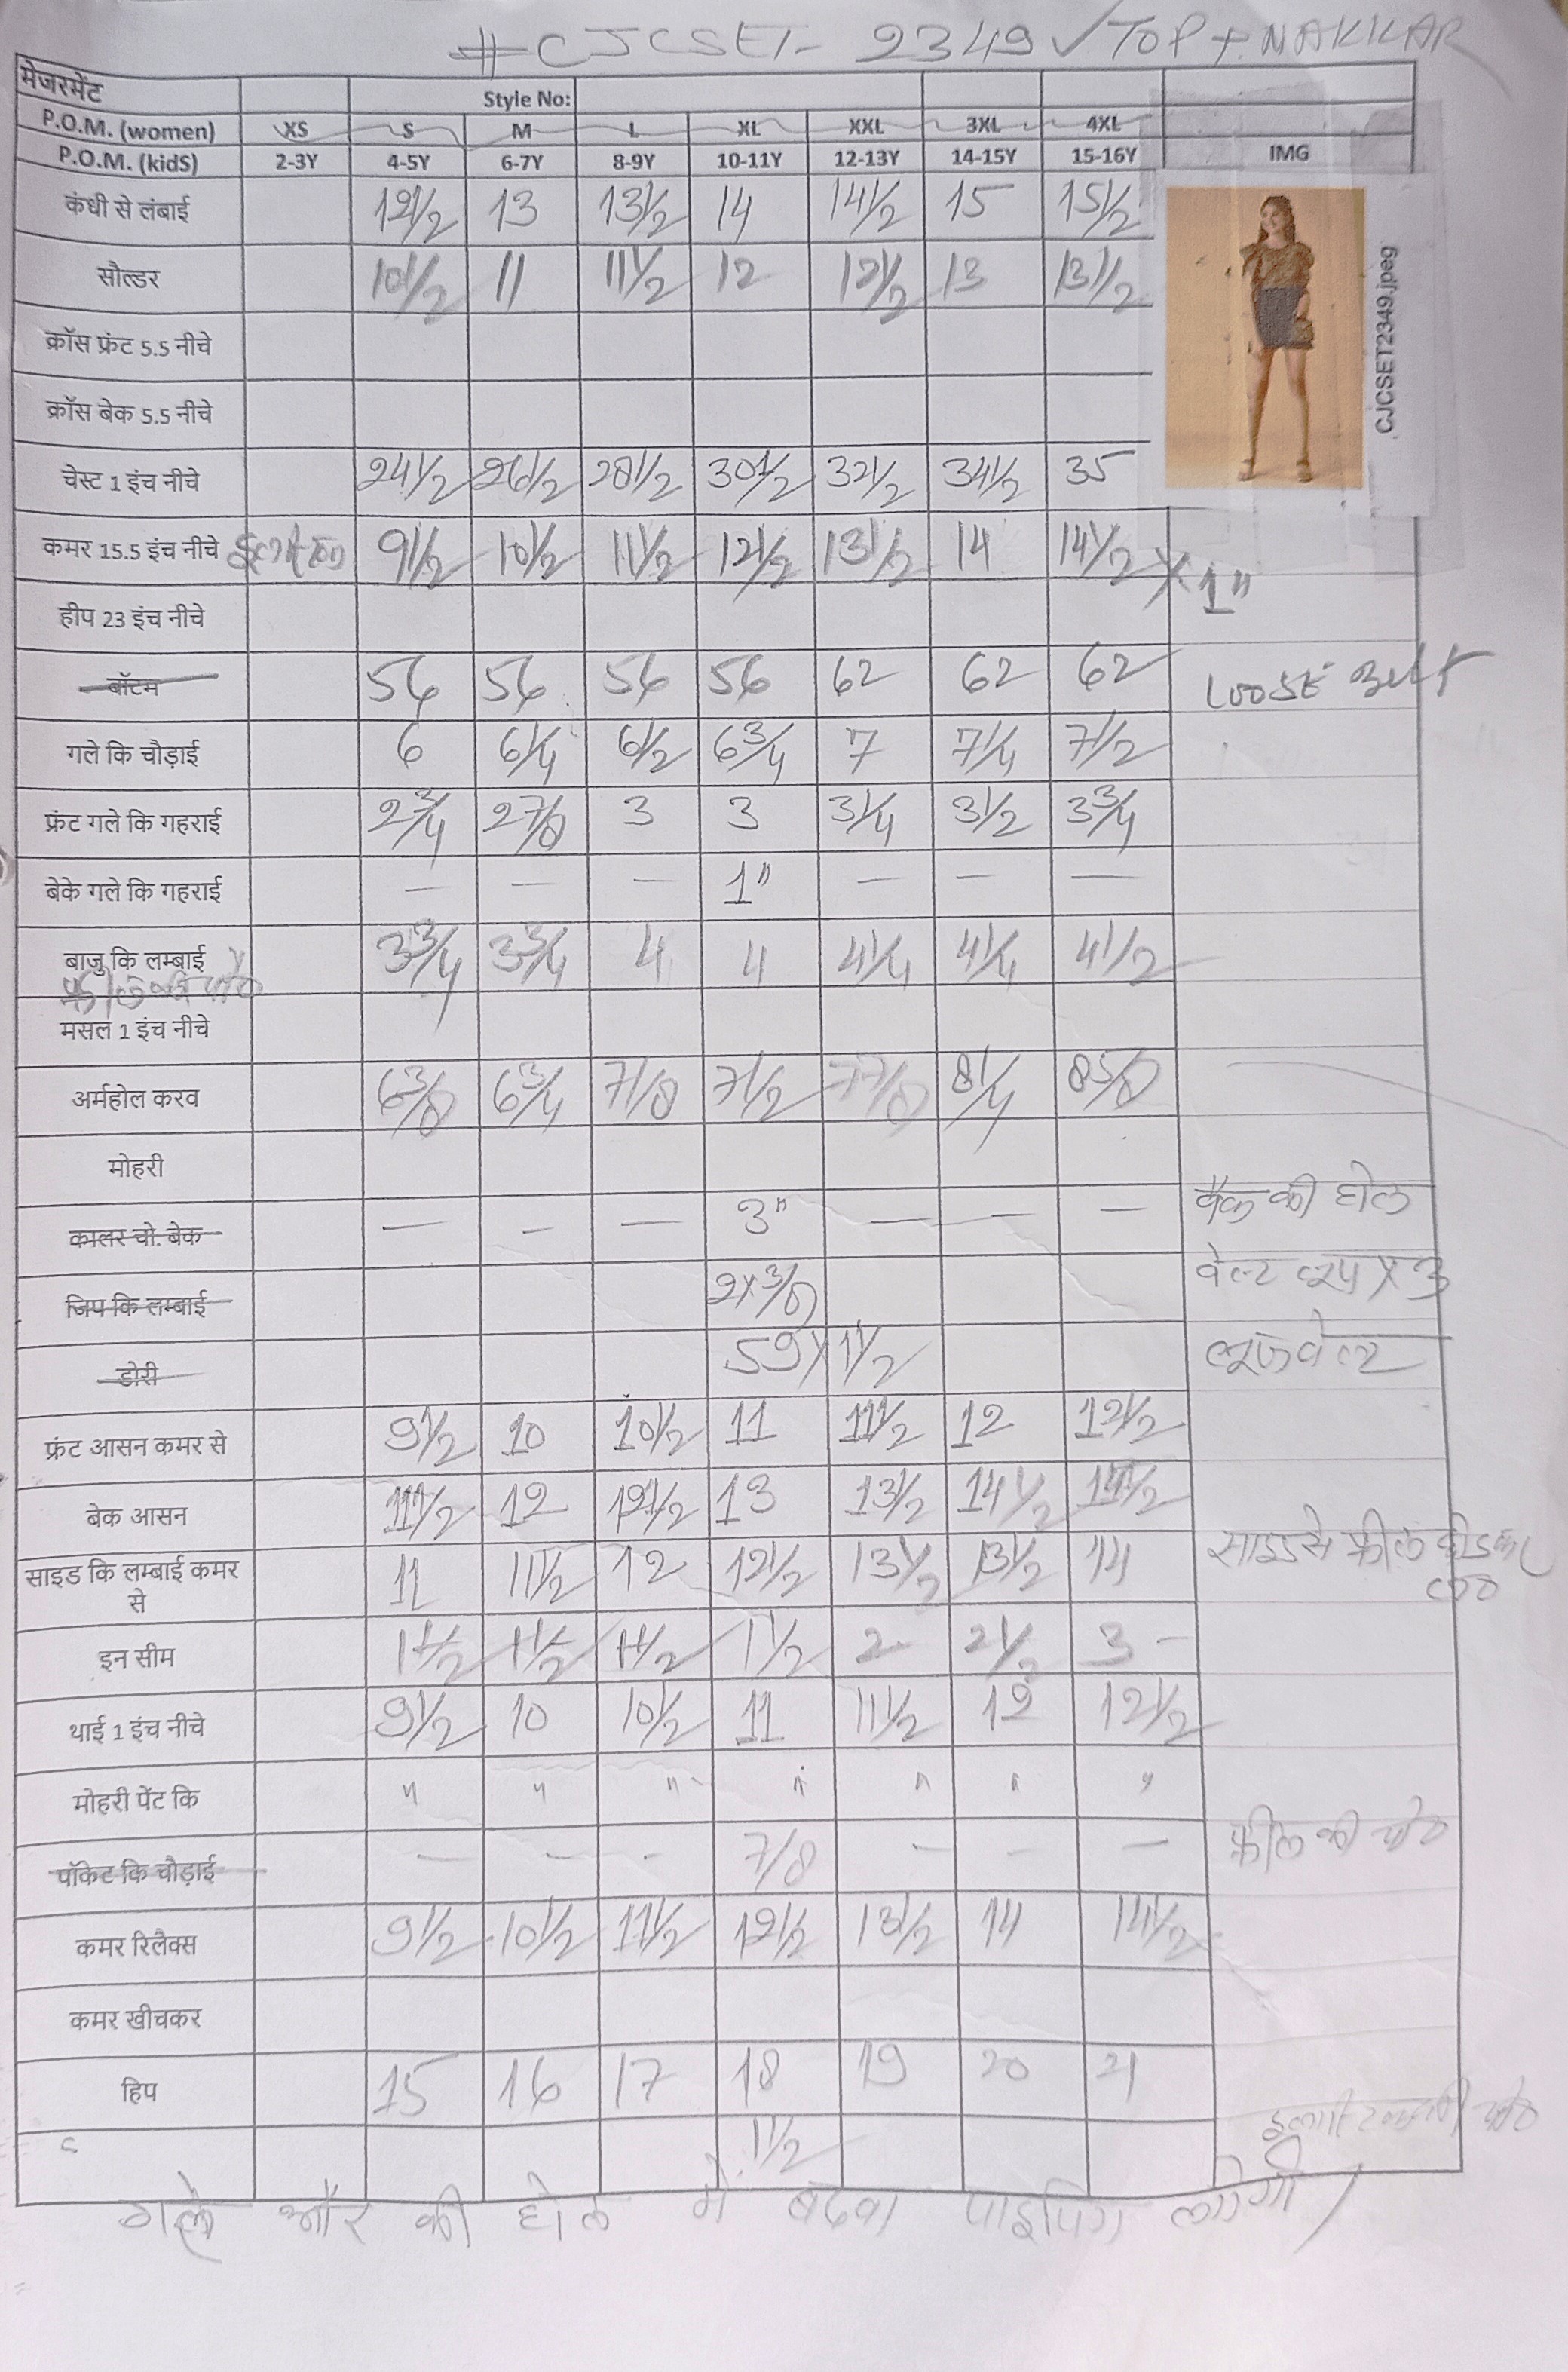 #CJCSET- 2349 ✓ TOP + NAKKAR
मेजरमेंट Style No:
P.O.M. (women) XS S M L XL XXL 3XL 4XL
P.O.M. (kidS) 2-3Y 4-5Y 6-7Y 8-9Y 10-11Y 12-13Y 14-15Y 15-16Y IMG
कंधी से लंबाई 12 1/2 13 13 1/2 14 14 1/2 15 15 1/2
सौल्डर 10 1/2 11 11 1/2 12 12 1/2 13 13 1/2
CJCSET2349.jpeg
क्रॉस फ्रंट 5.5 नीचे
क्रॉस बेक 5.5 नीचे
चेस्ट 1 इंच नीचे 24 1/2 26 1/2 28 1/2 30 1/2 32 1/2 34 1/2 35
कमर 15.5 इंच नीचे 9 1/2 10 1/2 11 1/2 12 1/2 13 1/2 14 14 1/2 X 1"
हीप 23 इंच नीचे
बॉटम 56 56 56 56 62 62 62 LOOSE BELT
गले कि चौड़ाई 6 6 1/4 6 1/2 6 3/4 7 7 1/4 7 1/2
फ्रंट गले कि गहराई 2 3/4 2 7/8 3 3 3 1/4 3 1/2 3 3/4
बेके गले कि गहराई — — — 1" — — —
बाजु कि लम्बाई 3 3/4 3 3/4 4 4 4 1/4 4 1/4 4 1/2
मसल 1 इंच नीचे
अर्महोल करव 6 3/8 6 3/4 7 1/8 7 1/2 7 7/8 8 1/4 8 5/8
मोहरी
कालर चो. बेक — — — 3" — — — बैक की होल
जिप कि लम्बाई 2 x 3/8 बेल्ट लूप X 3
डोरी 59 X 1 1/2 लूजबेल्ट
फ्रंट आसन कमर से 9 1/2 10 10 1/2 11 11 1/2 12 12 1/2
बेक आसन 11 1/2 12 12 1/2 13 13 1/2 14 1/2 14 1/2
साइड कि लम्बाई कमर से 11 11 1/2 12 12 1/2 13 1/2 13 1/2 14 साइड से फ्रील
इन सीम 1 1/2 1 1/2 1 1/2 1 1/2 2 2 1/2 3
थाई 1 इंच नीचे 9 1/2 10 10 1/2 11 11 1/2 12 12 1/2
मोहरी पेंट कि " " " " " " "
पॉकेट कि चौड़ाई — — - 7/8 — — — फ्रील की
कमर रिलैक्स 9 1/2 10 1/2 11 1/2 12 1/2 13 1/2 14 14 1/2
कमर खीचकर
हिप 15 16 17 18 19 20 21
1 1/2
गले और की होल में बदवा पाइपिंग लगेगी